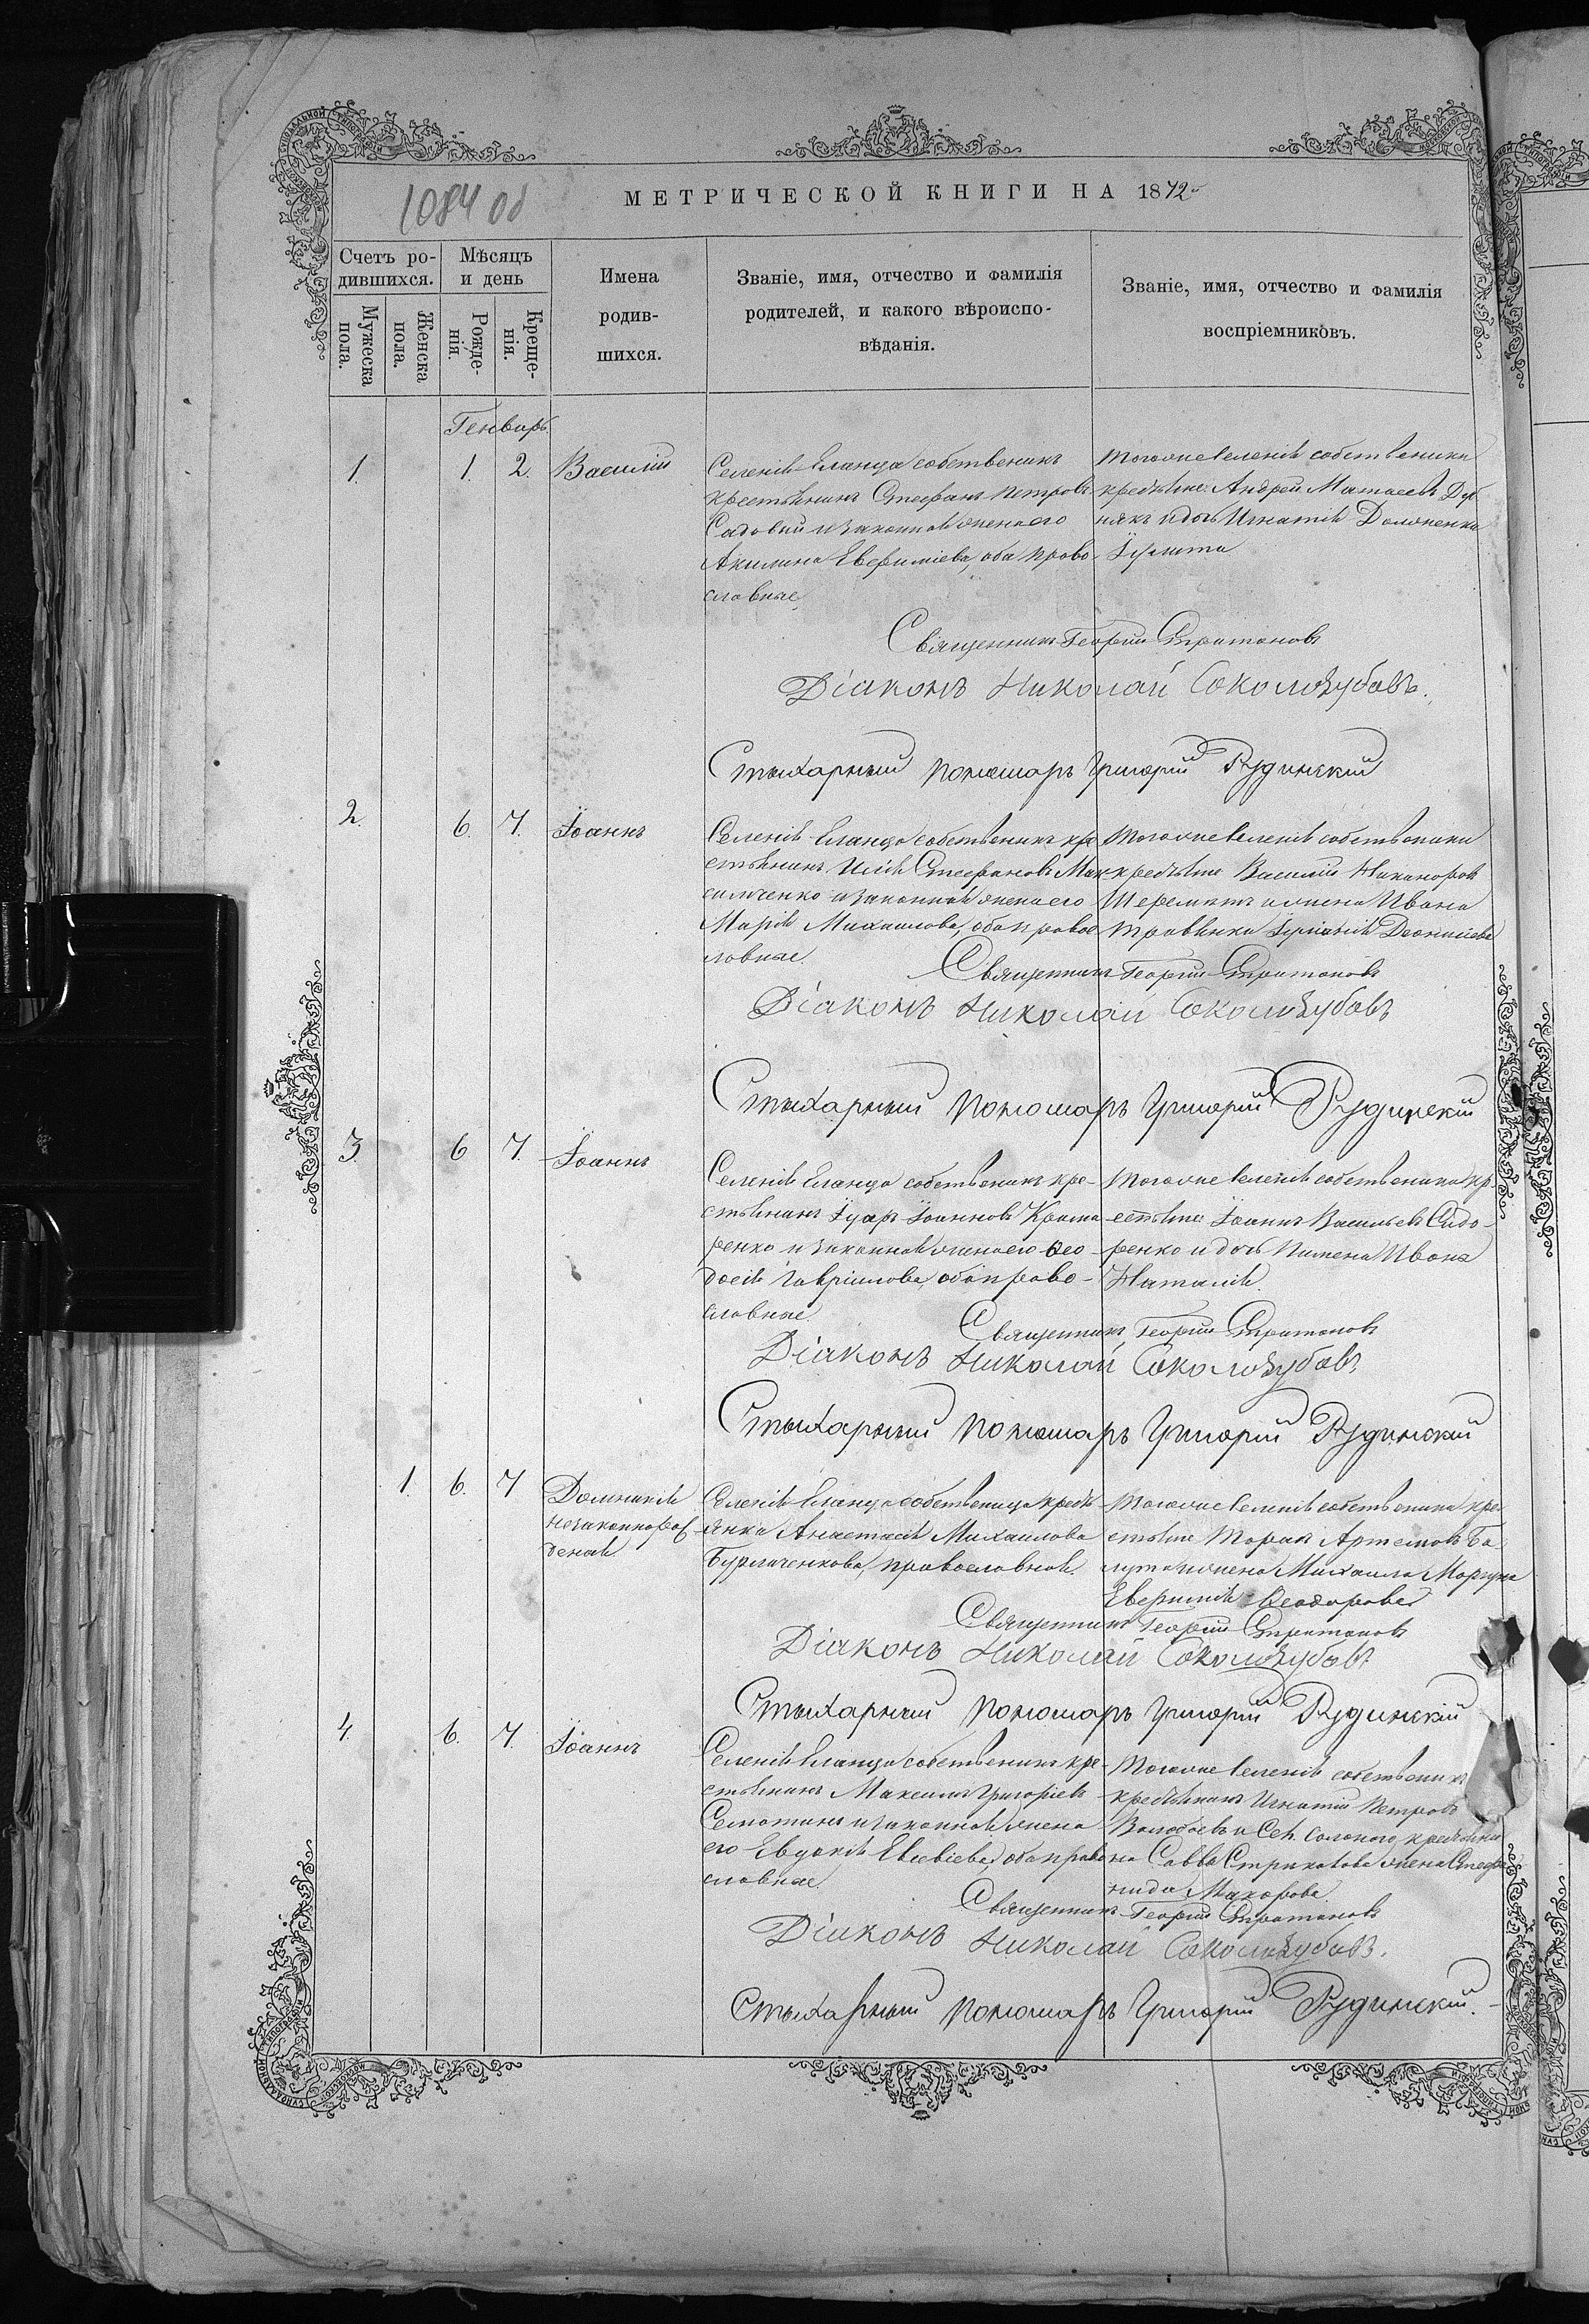 1084 об
МЕТРИЧЕСКОЙ КНИГИ НА 1872
Счетъ ро-
дившихся.
Мужеска
пола.
Женска
пола.
Мѣсяцъ
и день
Рожде-
нія.
Креще-
нія.
Имена
родив-
шихся.
Званіе, имя, отчество и фамилія
родителей, и какого вѣроиспо-
вѣданія.
Званіе, имя, отчество и фамилія
воспріемниковъ.
Генварь
1. 1. 2. Василій
Селенія Еланца собственикъ
крестьянинъ Стефанъ Петровъ
Садовий и законная жена его
Акилина Евфиміева, оба право
славные
тогоже селенія собственики
крестьяне Андрей Матѳеевъ
дочь Игнатія
Іулита
Священникъ Георгій Стратоновъ
Діаконъ Николай Соколозубовъ.
Стыхарный пономарь Григорій Рудинский
2. 6. 7. Іоаннъ
Селенія Еланца собственикъ кре
стьянинъ Илія Стефановъ Мак
сименко и законная жена его
Марія Михаилова, оба правос
лавные
тогоже селенія собственики
крестьяне Василій Никаноровъ
Шереметъ и жена Ивана
Деонисіева
Священникъ Георгій Стратоновъ
Діаконъ Николай Соколозубовъ
Стыхарный пономарь Григорій Рудинскій
3. 6 7. Іоаннъ
Селенія Еланца собственикъ кре-
стьянинъ Іоанновъ
ренко и законная жена его Ѳео
досія Гавріилова, оба право-
славные
тогоже селенія собственики кр
естьяне Іоаннъ Васильевъ Сидо-
ренко и дочь Пимена Ивона
Наталія.
Священникъ Георгій Стратоновъ
Діаконъ Николай Соколозубовъ
Стыхарный пономарь Григорій Рудинский
1. 6. 7 Домникія
незаконнорож
деная
Селенія Еланца собственица крест
янка Анастасія Михаилова
Бурлаченкова, православная.
тогоже селенія собственики кре
стьяне Тарас Артемовъ Ба
лута и жена Михаила
Евфимія Ѳеодорова
Священникъ Георгій Стратоновъ
Діаконъ Николай Соколозубовъ
Стыхарный пономарь Григорій Рудинскій
4. 6. 7. Іоаннъ
Селенія Еланца собственикъ кре-
стьянинъ Максимъ Григоріевъ
и законная жена
его Евдокія Евсевіева, оба право
славные
тогоже селенія собственикъ
крестьянинъ Игнатій Петровъ
и Сел. Солоного
Савва жена Стефа
нида Макарова
Священникъ Георгій Стратоновъ
Діаконъ Николай Соколозубовъ.
Стыхарный пономарь Григорій Рудинский.